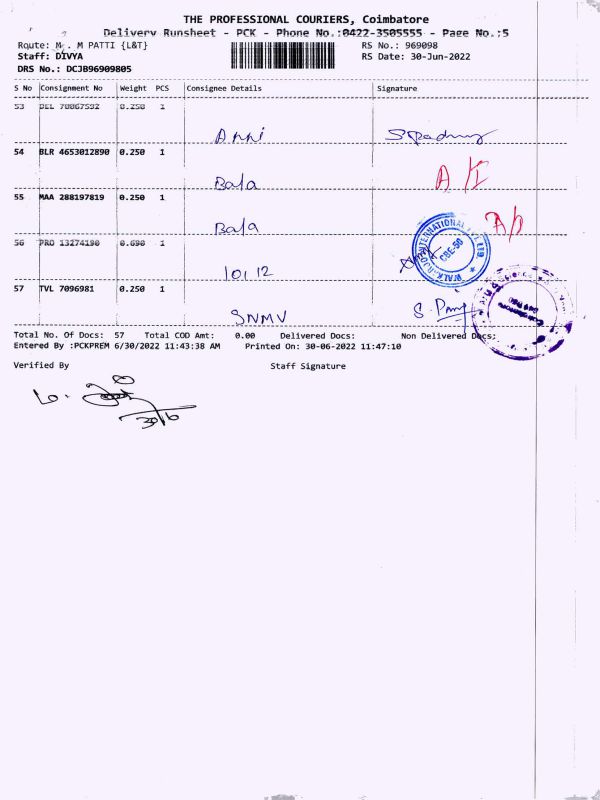 THE PROFESSIONAL COURIERS, Coimbatore
Delivery Runsheet - PCK - Phone No.:0422-3505555 - Page No.:5
Route: M. M PATTI {L&T} RS No.: 969098
Staff: DIVYA RS Date: 30-Jun-2022
DRS No.: DCJB96909805
S No Consignment No Weight PCS Consignee Details Signature
53 DEL 70867592 0.250 1
Anni
54 BLR 4653012890 0.250 1
Bala
55 MAA 288197819 0.250 1
Bala
56 PRO 13274190 0.690 1
10, 12
57 TVL 7096981 0.250 1
SNMV
INTERNATIONAL PVT LTD.
CBE-50
Total No. Of Docs: 57 Total COD Amt: 0.00 Delivered Docs: Non Delivered Docs:
Entered By :PCKPREM 6/30/2022 11:43:38 AM Printed On: 30-06-2022 11:47:10
Verified By Staff Signature
30/6